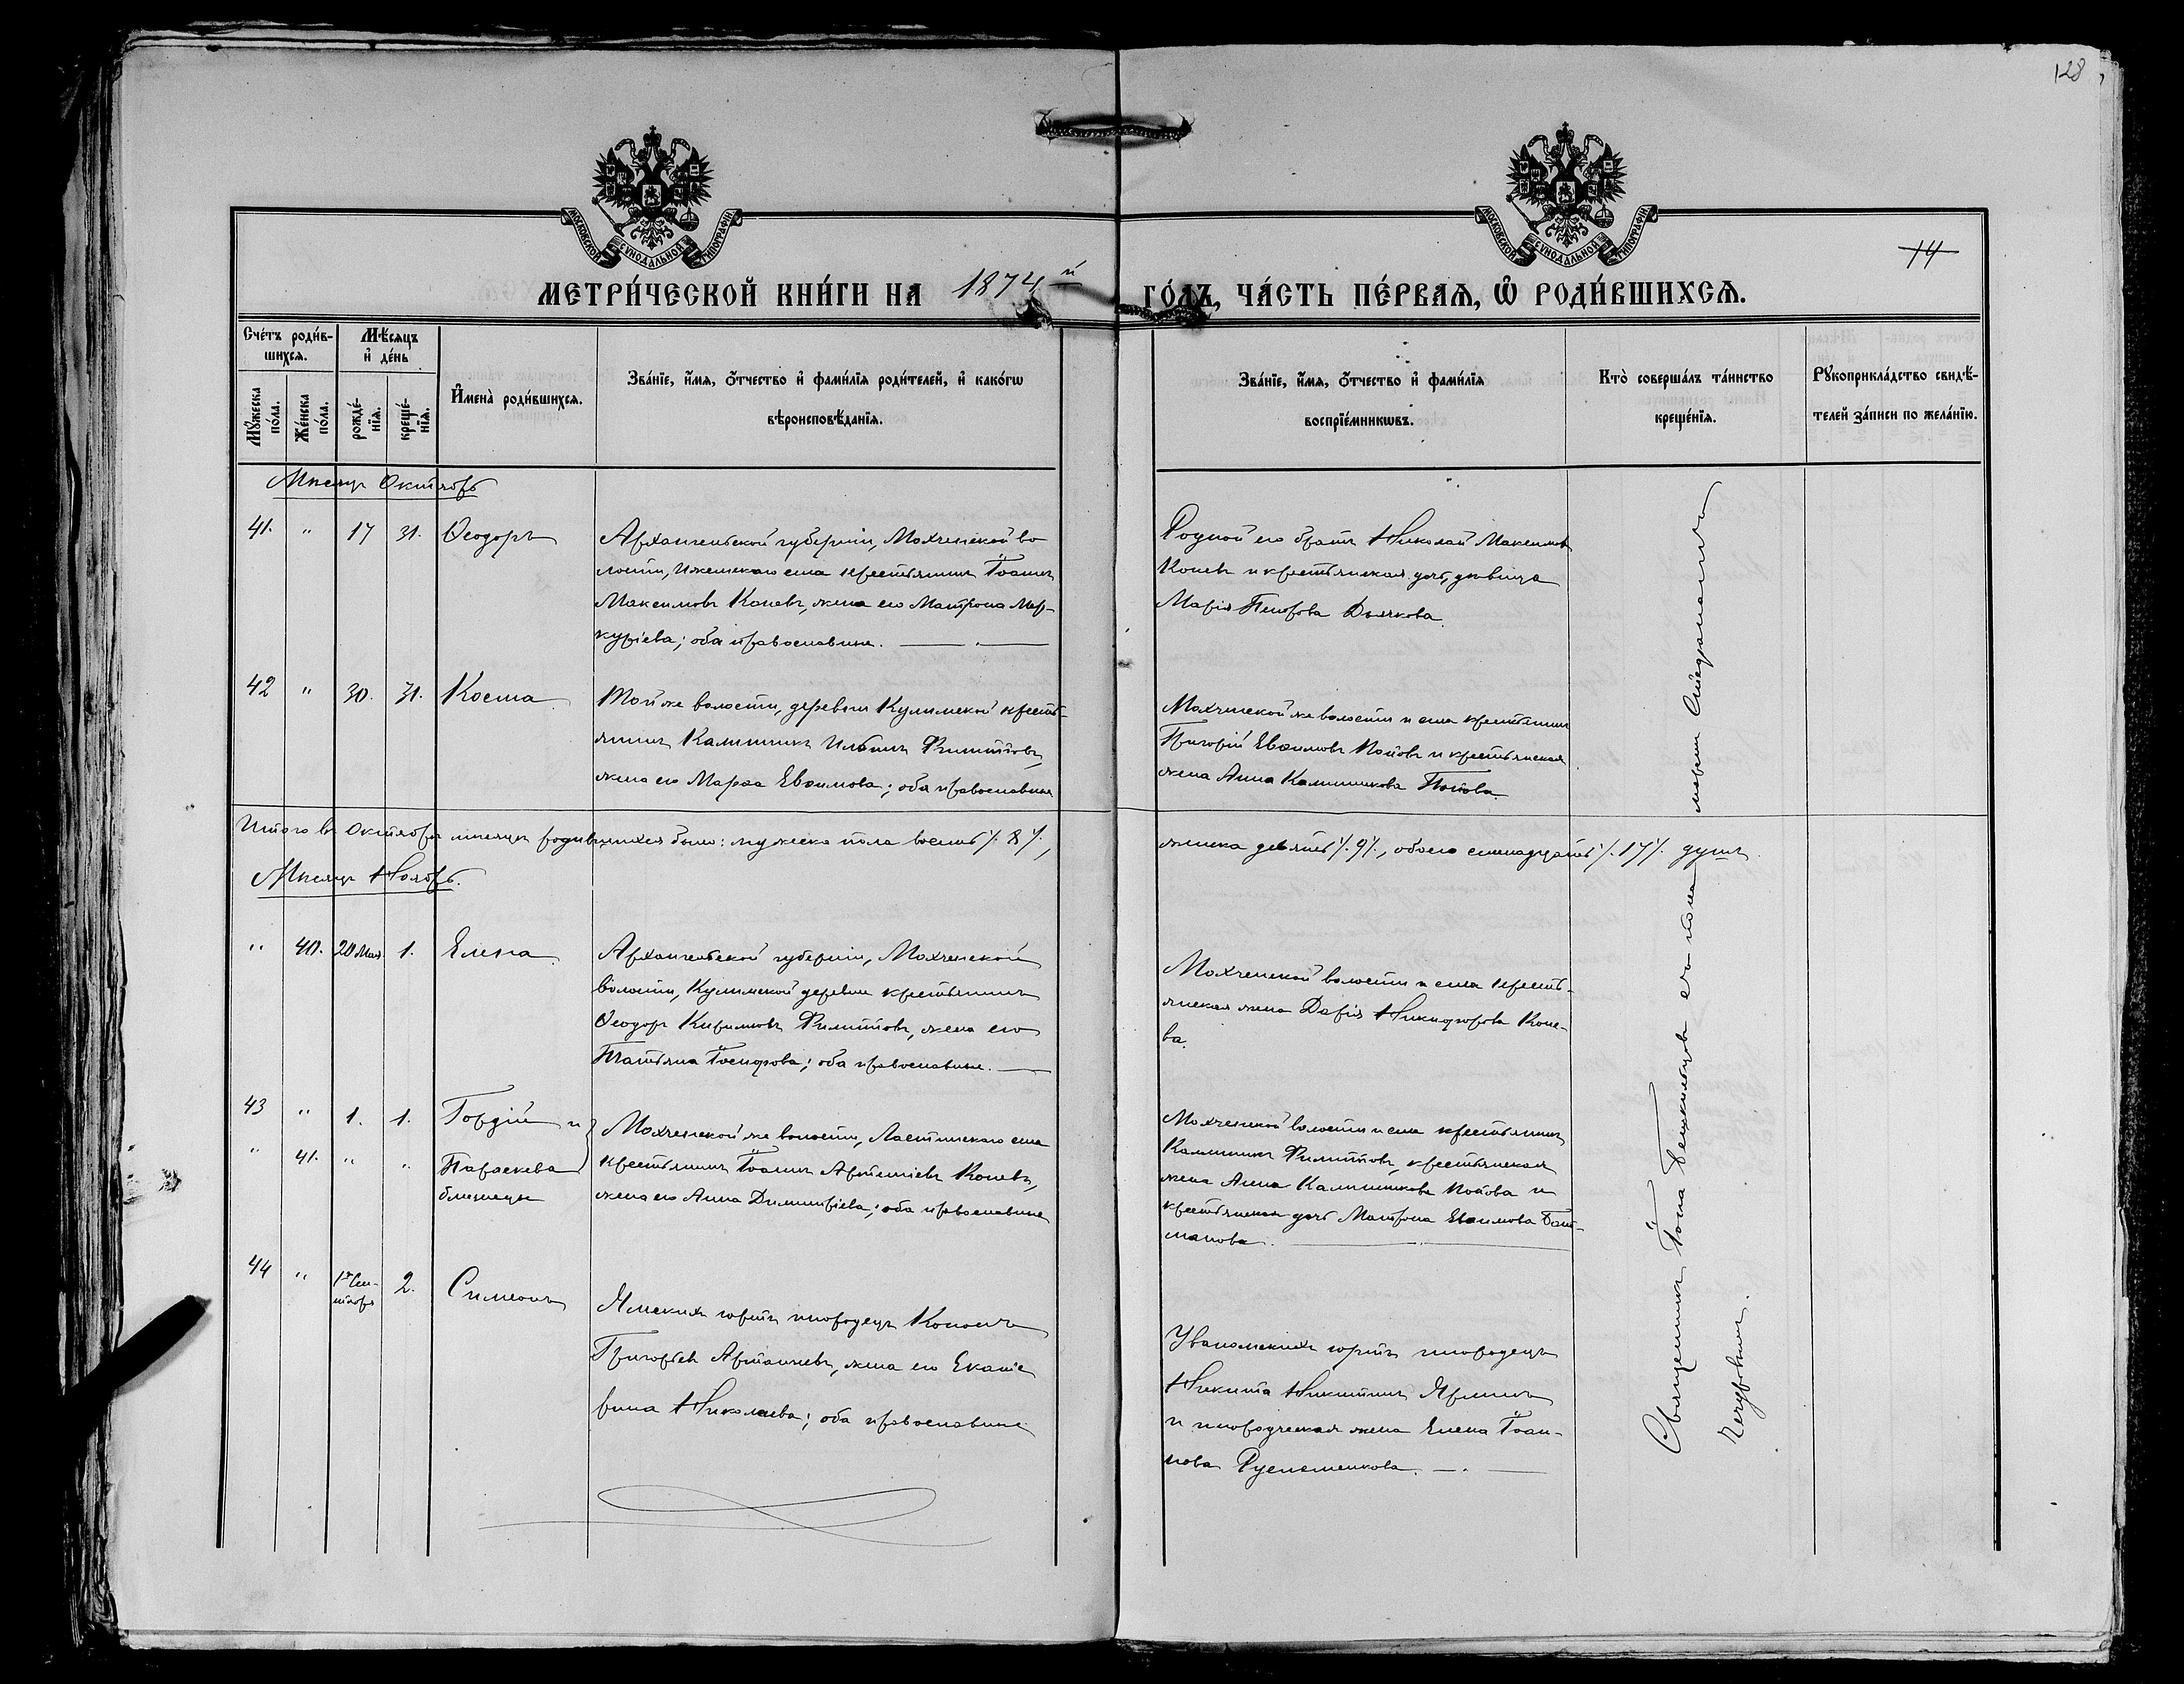 128
МОСКОВСКОЙ СѴНОДАЛЬНОЙ ТИПОГРАФІИ
МОСКОВСКОЙ СѴНОДАЛЬНОЙ ТИПОГРАФІИ
14
МЕТРИ́ЧЕСКОЙ КНИ́ГИ НА 1874й ГО́ДЪ, ЧА́СТЬ ПЕ́РВАѦ, Ѽ РОДИ́ВШИХСѦ.
Сче́тъ роди́в-
шихсѧ.
Мꙋ́жеска по́ла.
Же́нска по́ла.
Мѣ́сѧцъ
и҆ де́нь
рожде́-
нїѧ.
креще́-
нїѧ.
И҆мена̀ роди́вшихсѧ.
Зва́нїе, и҆́мѧ, ѻ҆́тчество и҆ фами́лїѧ роди́телей, и҆ како́гѡ
вѣроисповѣ́данїѧ.
Зва́нїе, и҆́мѧ, ѻ҆́тчество и҆ фами́лїѧ
воспрїе́мникѡвъ.
Кто̀ соверша́лъ та́инство
креще́нїѧ.
Рꙋкоприкла́дство свидѣ́-
телей за́писи по жела́нїю.
Мѣсяцъ Октябрь
41. " 17 31. Ѳеодоръ
Архангельской губерніи, Мохченской во
лости, Ижемскаго села крестьянинъ Іоаннъ
Максимовъ Каневъ, жена его Матрона Мер-
куріева; оба православные.
Родной его братъ Николай Максимовъ
Каневъ и крестьянская дочь, дѣвица
Марія Дьячкова.
42 " 30. 31. Косма
Той же волости, деревни крестъ-
янинъ Каллиникъ Ильинъ Филипповъ,
жена его Марѳа Евѳимова; оба православные
Мохченской же волости и села крестьянинъ
Григорій Евѳимовъ Поповъ и крестьянская
жена Анна Каллиникова Попова.
Итого въ Октябрѣ мѣсяцѣ родившихся было: мужеска пола восемь /. 8 /.,
женска девять /. 9 /., обоего семнадцать /. 17 /. душъ.
Мѣсяцъ Ноябрь.
" 40. 20 1. Елена
Архангельской губерніи, Мохченской
волости, деревни крестьянинъ
Ѳеодоръ Кириловъ Филипповъ, жена его
Татьяна Іосифова; оба православные.
Мохченской волости и села кресть-
янская жена Дарія Никифорова Коне-
ва.
43 " 1. 1. Гордій и
" 41. " " Параскева
близнецы
Мохченской же волости, села
крестьянинъ Іоаннъ Артеміевъ Каневъ,
жена его Анна Димитріева; оба православные
Мохченской волости и села крестьянинъ
Каллиникъ Филипповъ, крестьянская
жена Анна Каллиникова Попова и
крестьянская дочь Матрона Евѳимова
44 " 1го Сен-
тября 2. Симеонъ
юртъ инородецъ Кононъ
Григорьев жена его Екате
рина Николаева; оба православные
юртъ инородецъ
Никита Никитинъ
и инородческая жена Елена Іоан-
нова
Священникъ Іона его